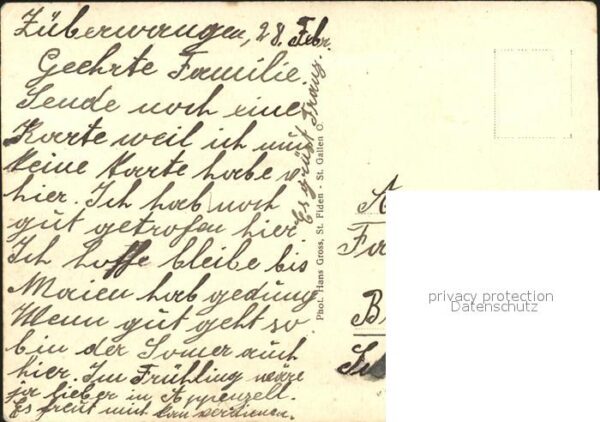 Züberwangen, 28. Febr.
Geehrte Familie.
Sende noch eine
Karte weil ich nun
keine Karte habe v
hier. Ich hab noch
gut getrofen hier
Ich hoffe bleibe bis
Maien hab gedung
Wenn gut geht so
bin der Somer auch
hier. Im Frühling wäre
ja lieber in Appenzell.
Es freut mich kan verdienen.
Es grüsst Franz.
Phot. Hans Gross, St. Fiden - St. Gallen O.
A
Fa
B
privacy protection
Datenschutz